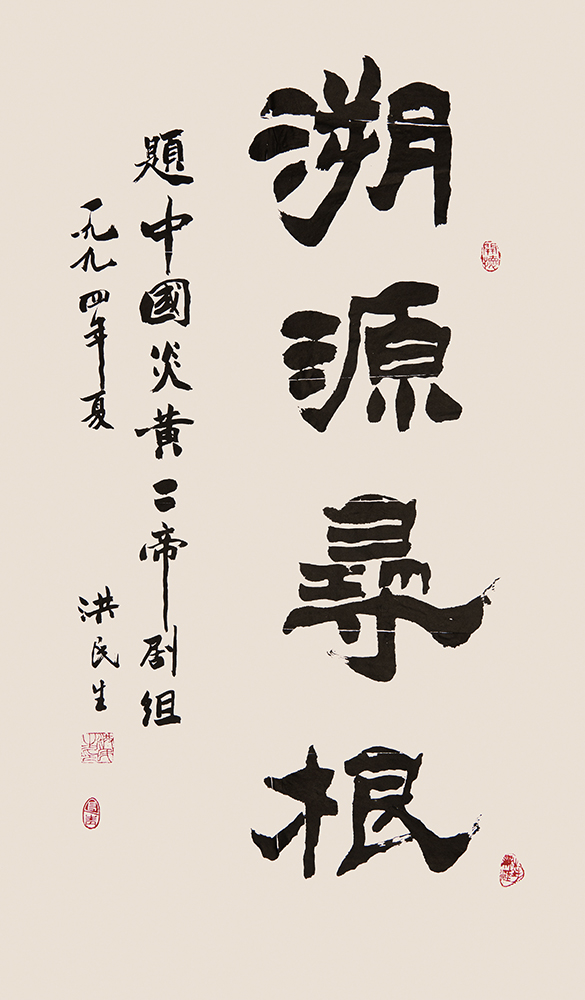 溯源尋根
題中國炎黄二帝剧组
一九九四年夏
洪民生